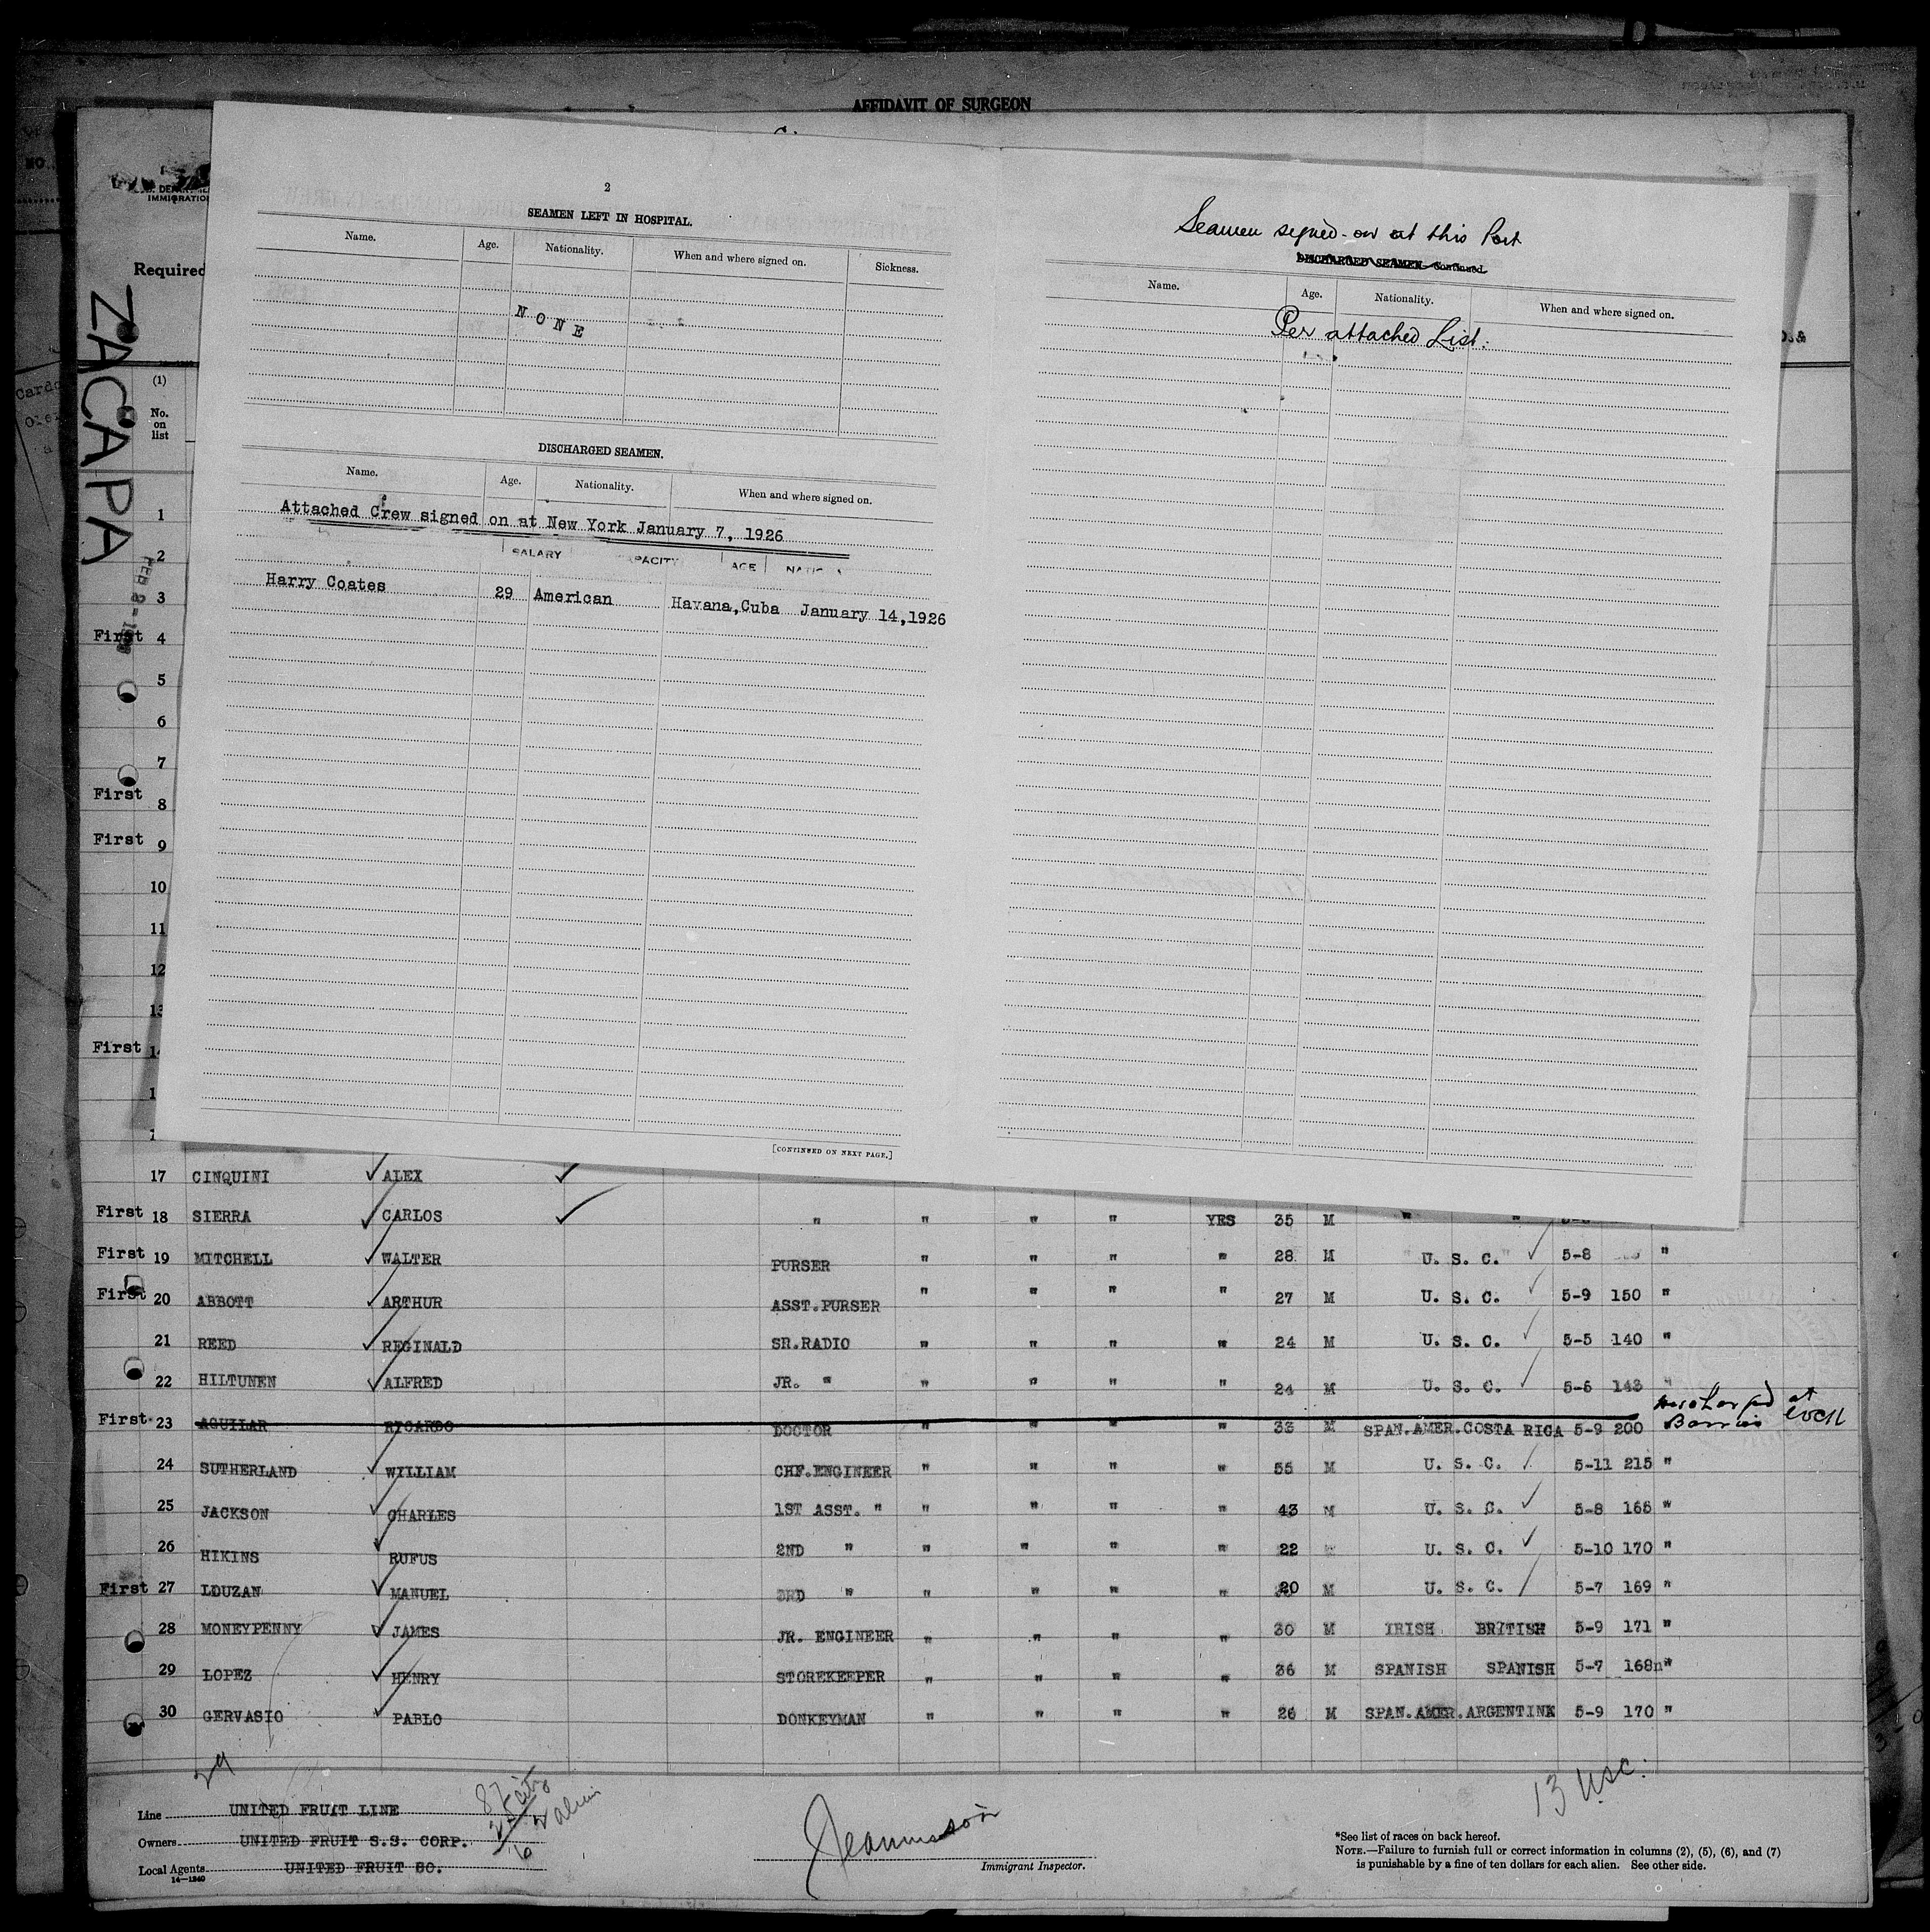 AFFIDAVIT OF SURGEON
IMMIGRATION
Required
ZACAPA
(1)
No. on list
2
SEAMEN LEFT IN HOSPITAL.
Name. Age. Nationality. When and where signed on. Sickness.
NONE
DISCHARGED SEAMEN.
Name. Age. Nationality. When and where signed on.
Attached Crew signed on at New York January 7, 1926
SALARY AGE
Harry Coates 29 American Havana, Cuba January 14, 1926
[CONTINUED ON NEXT PAGE.]
Seamen signed-on at this Port
DISCHARGED SEAMEN—Continued.
Name. Age. Nationality. When and where signed on.
Per attached List.
1
2
3
First 4
5
6
7
First 8
First 9
10
11
12
13
First
17 CINQUINI ALEX
First 18 SIERRA CARLOS " " " " YES 35 M " "
First 19 MITCHELL WALTER PURSER " " " " 28 M U. S. C. 5-8 "
First 20 ABBOTT ARTHUR ASST.PURSER " " " " 27 M U. S. C. 5-9 150 "
21 REED REGINALD SR.RADIO " " " " 24 M U. S. C. 5-5 140 "
22 HILTUNEN ALFRED JR. " " " " " 24 M U. S. C. 5-6 143 "
First 23 AGUILAR RICARDO DOCTOR " " " " 33 M SPAN.AMER.COSTA RICA 5-9 200 Discharged at Barrios
24 SUTHERLAND WILLIAM CHF.ENGINEER " " " " 55 M U. S. C. 5-11 215 "
25 JACKSON CHARLES 1ST ASST. " " " " " 43 M U. S. C. 5-8 165 "
26 HIKINS RUFUS 2ND " " " " " 22 M U. S. C. 5-10 170 "
First 27 LOUZAN MANUEL 3RD " " " " " 20 M U. S. C. 5-7 169 "
28 MONEYPENNY JAMES JR. ENGINEER " " " " 30 M IRISH BRITISH 5-9 171 "
29 LOPEZ HENRY STOREKEEPER " " " " 36 M SPANISH SPANISH 5-7 168 "
30 GERVASIO PABLO DONKEYMAN " " " " 26 M SPAN.AMER.ARGENTINE 5-9 170 "
29
13 USC.
Line UNITED FRUIT LINE
Owners UNITED FRUIT S.S. CORP.
Local Agents UNITED FRUIT CO.
14—1240
Immigrant Inspector.
*See list of races on back hereof.
NOTE.—Failure to furnish full or correct information in columns (2), (5), (6), and (7)
is punishable by a fine of ten dollars for each alien. See other side.